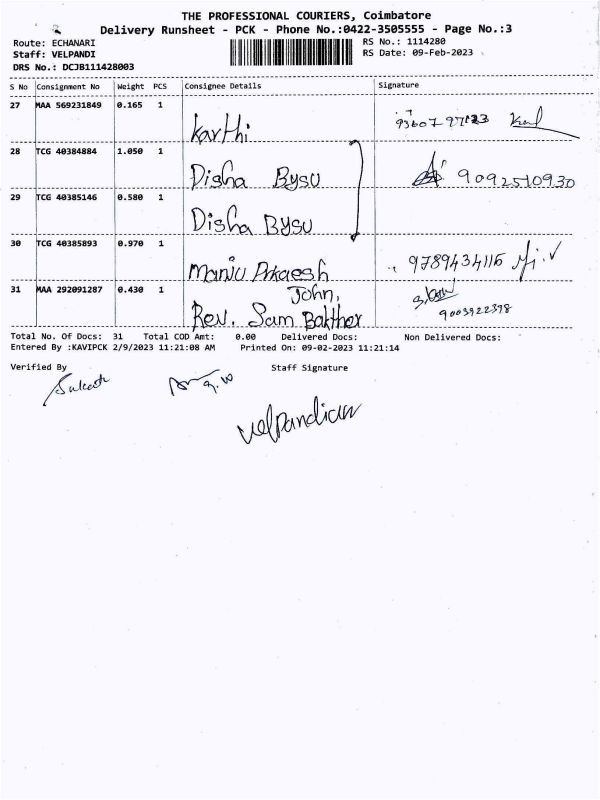 THE PROFESSIONAL COURIERS, Coimbatore
Delivery Runsheet - PCK - Phone No.:0422-3505555 - Page No.:3
Route: ECHANARI RS No.: 1114280
Staff: VELPANDI RS Date: 09-Feb-2023
DRS No.: DCJB111428003
S No Consignment No Weight PCS Consignee Details Signature
27 MAA 569231849 0.165 1
Karthi
28 TCG 40384884 1.050 1
Disha Bysu 9092510930
29 TCG 40385146 0.580 1
Disha Bysu
30 TCG 40385893 0.970 1
Manju 9789434116
31 MAA 292091287 0.430 1
John,
Rev. Sam 9003922398
Total No. Of Docs: 31 Total COD Amt: 0.00 Delivered Docs: Non Delivered Docs:
Entered By :KAVIPCK 2/9/2023 11:21:08 AM Printed On: 09-02-2023 11:21:14
Verified By Staff Signature
velpandian